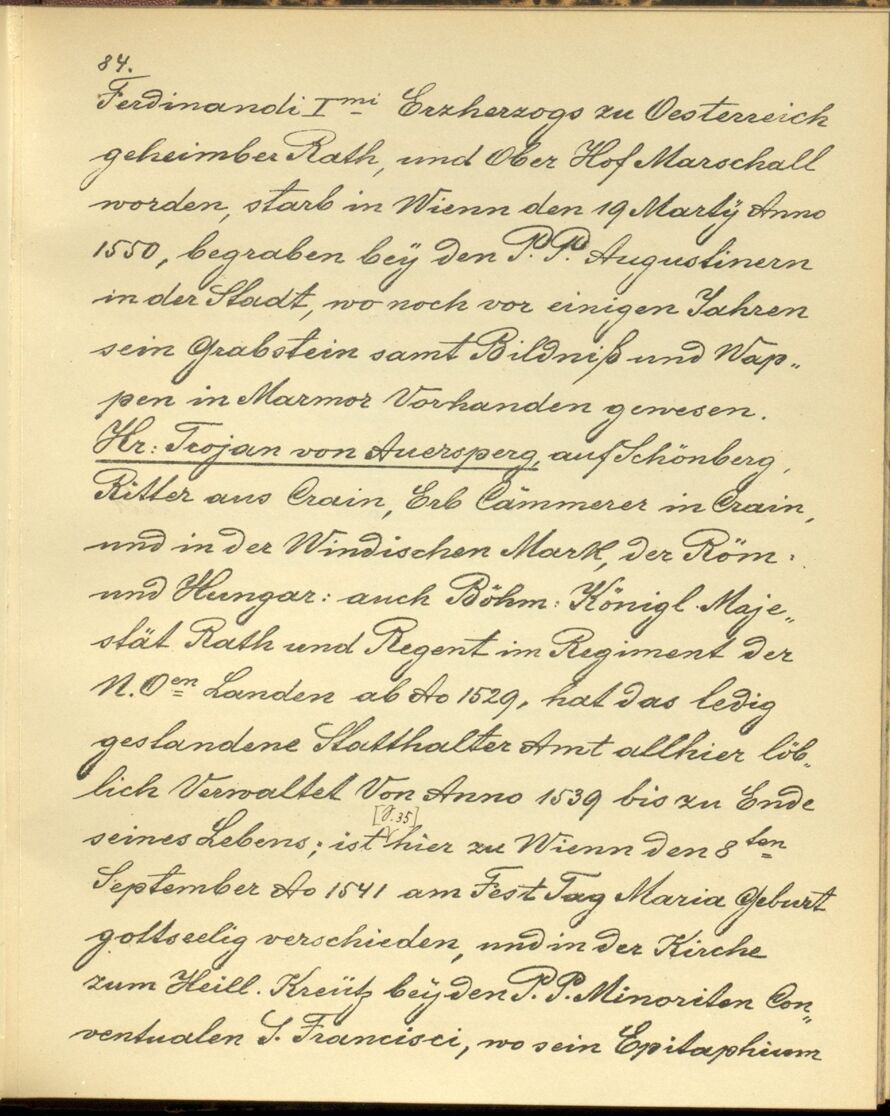 84.
Ferdinandi I mi Erzherzogs zu Oesterreich
geheimber Rath, und Ober Hof Marschall
worden, starb in Wienn den 19 Martÿ Anno
1550, begraben beÿ den P. P. Augustinern
in der Stadt, wo noch vor einigen Jahren
sein Grabstein samt Bildniß und Wap„
pen in Marmor Vorhanden gewesen.
Hr: Trojan von Auersperg, auf Schönberg,
Ritter aus Crain, Erb Cämmerer in Crain,
und in der Windischen Mark, der Röm:
und Hungar: auch Böhm: Königl. Maje„
stät Rath und Regent im Regiment der
N. Oen Landen ab Ao 1529, hat das ledig
gestandene Statthalter Amt allhier löb„
lich Verwaltet Von Anno 1539 bis zu Ende
[S. 35]
seines Lebens; ist hier zu Wienn den 8ten
September Ao 1541 am Fest Tag Maria Geburt
gottseelig verschieden, und in der Kirche
zum Heill. Kreütz beÿ den P. P. Minoriten Con„
ventualen S. Francisci, wo sein Epitaphium